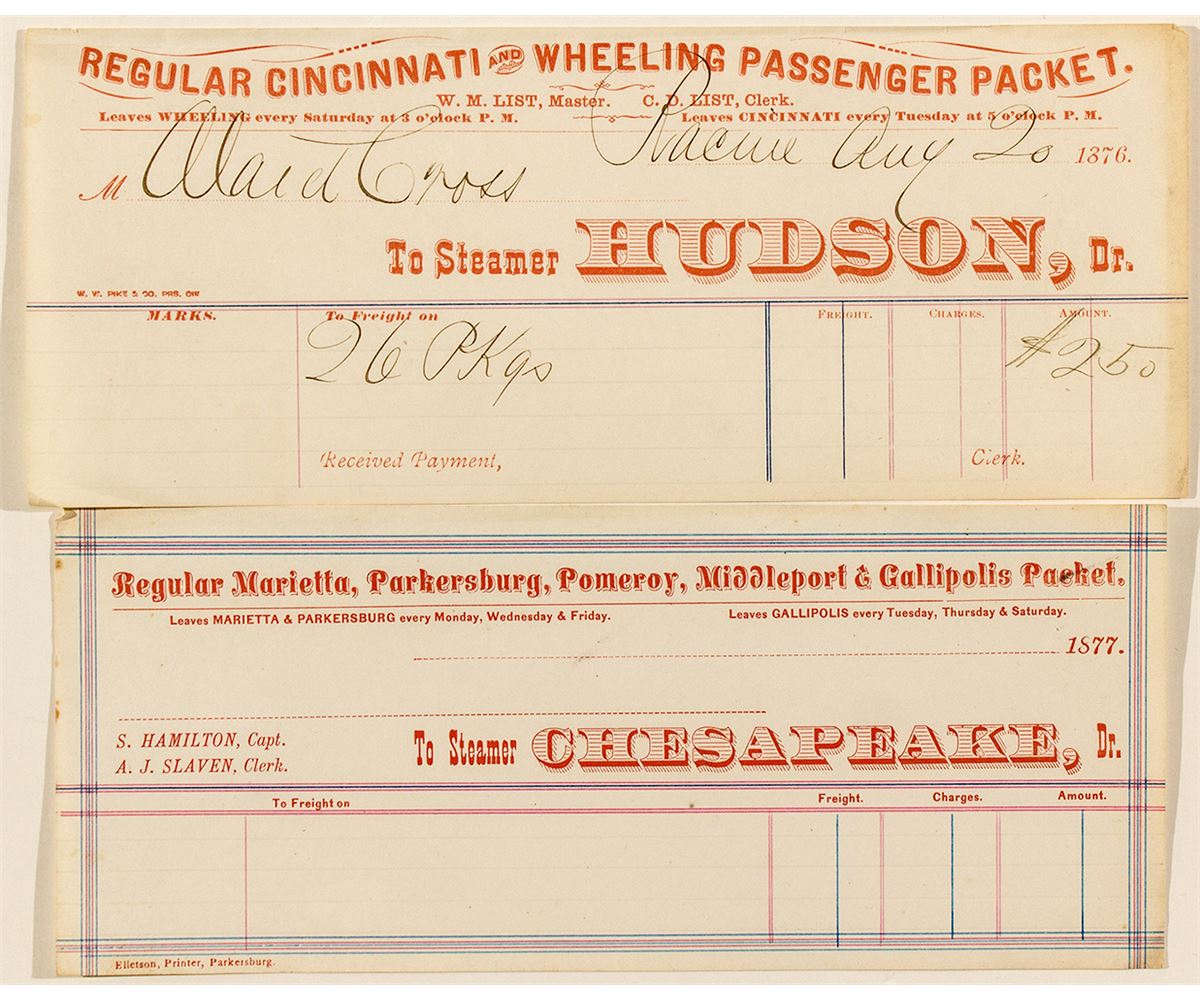 REGULAR CINCINNATI AND WHEELING PASSENGER PACKET.
W. M. LIST, Master. C. D. LIST, Clerk.
Leaves WHEELING every Saturday at 3 o'clock P. M. Leaves CINCINNATI every Tuesday at 5 o'clock P. M.
Racine Aug 20 1876.
M Cross
To Steamer HUDSON, Dr.
W. W. PIKE & CO. PRS. CIN
MARKS. To Freight on FREIGHT. CHARGES. AMOUNT.
26 PKgs $2.50
Received Payment, Clerk.
Regular Marietta, Parkersburg, Pomeroy, Middleport & Gallipolis Packet.
Leaves MARIETTA & PARKERSBURG every Monday, Wednesday & Friday. Leaves GALLIPOLIS every Tuesday, Thursday & Saturday.
1877.
S. HAMILTON, Capt.
A. J. SLAVEN, Clerk.
To Steamer CHESAPEAKE, Dr.
To Freight on Freight. Charges. Amount.
Elletson, Printer, Parkersburg.